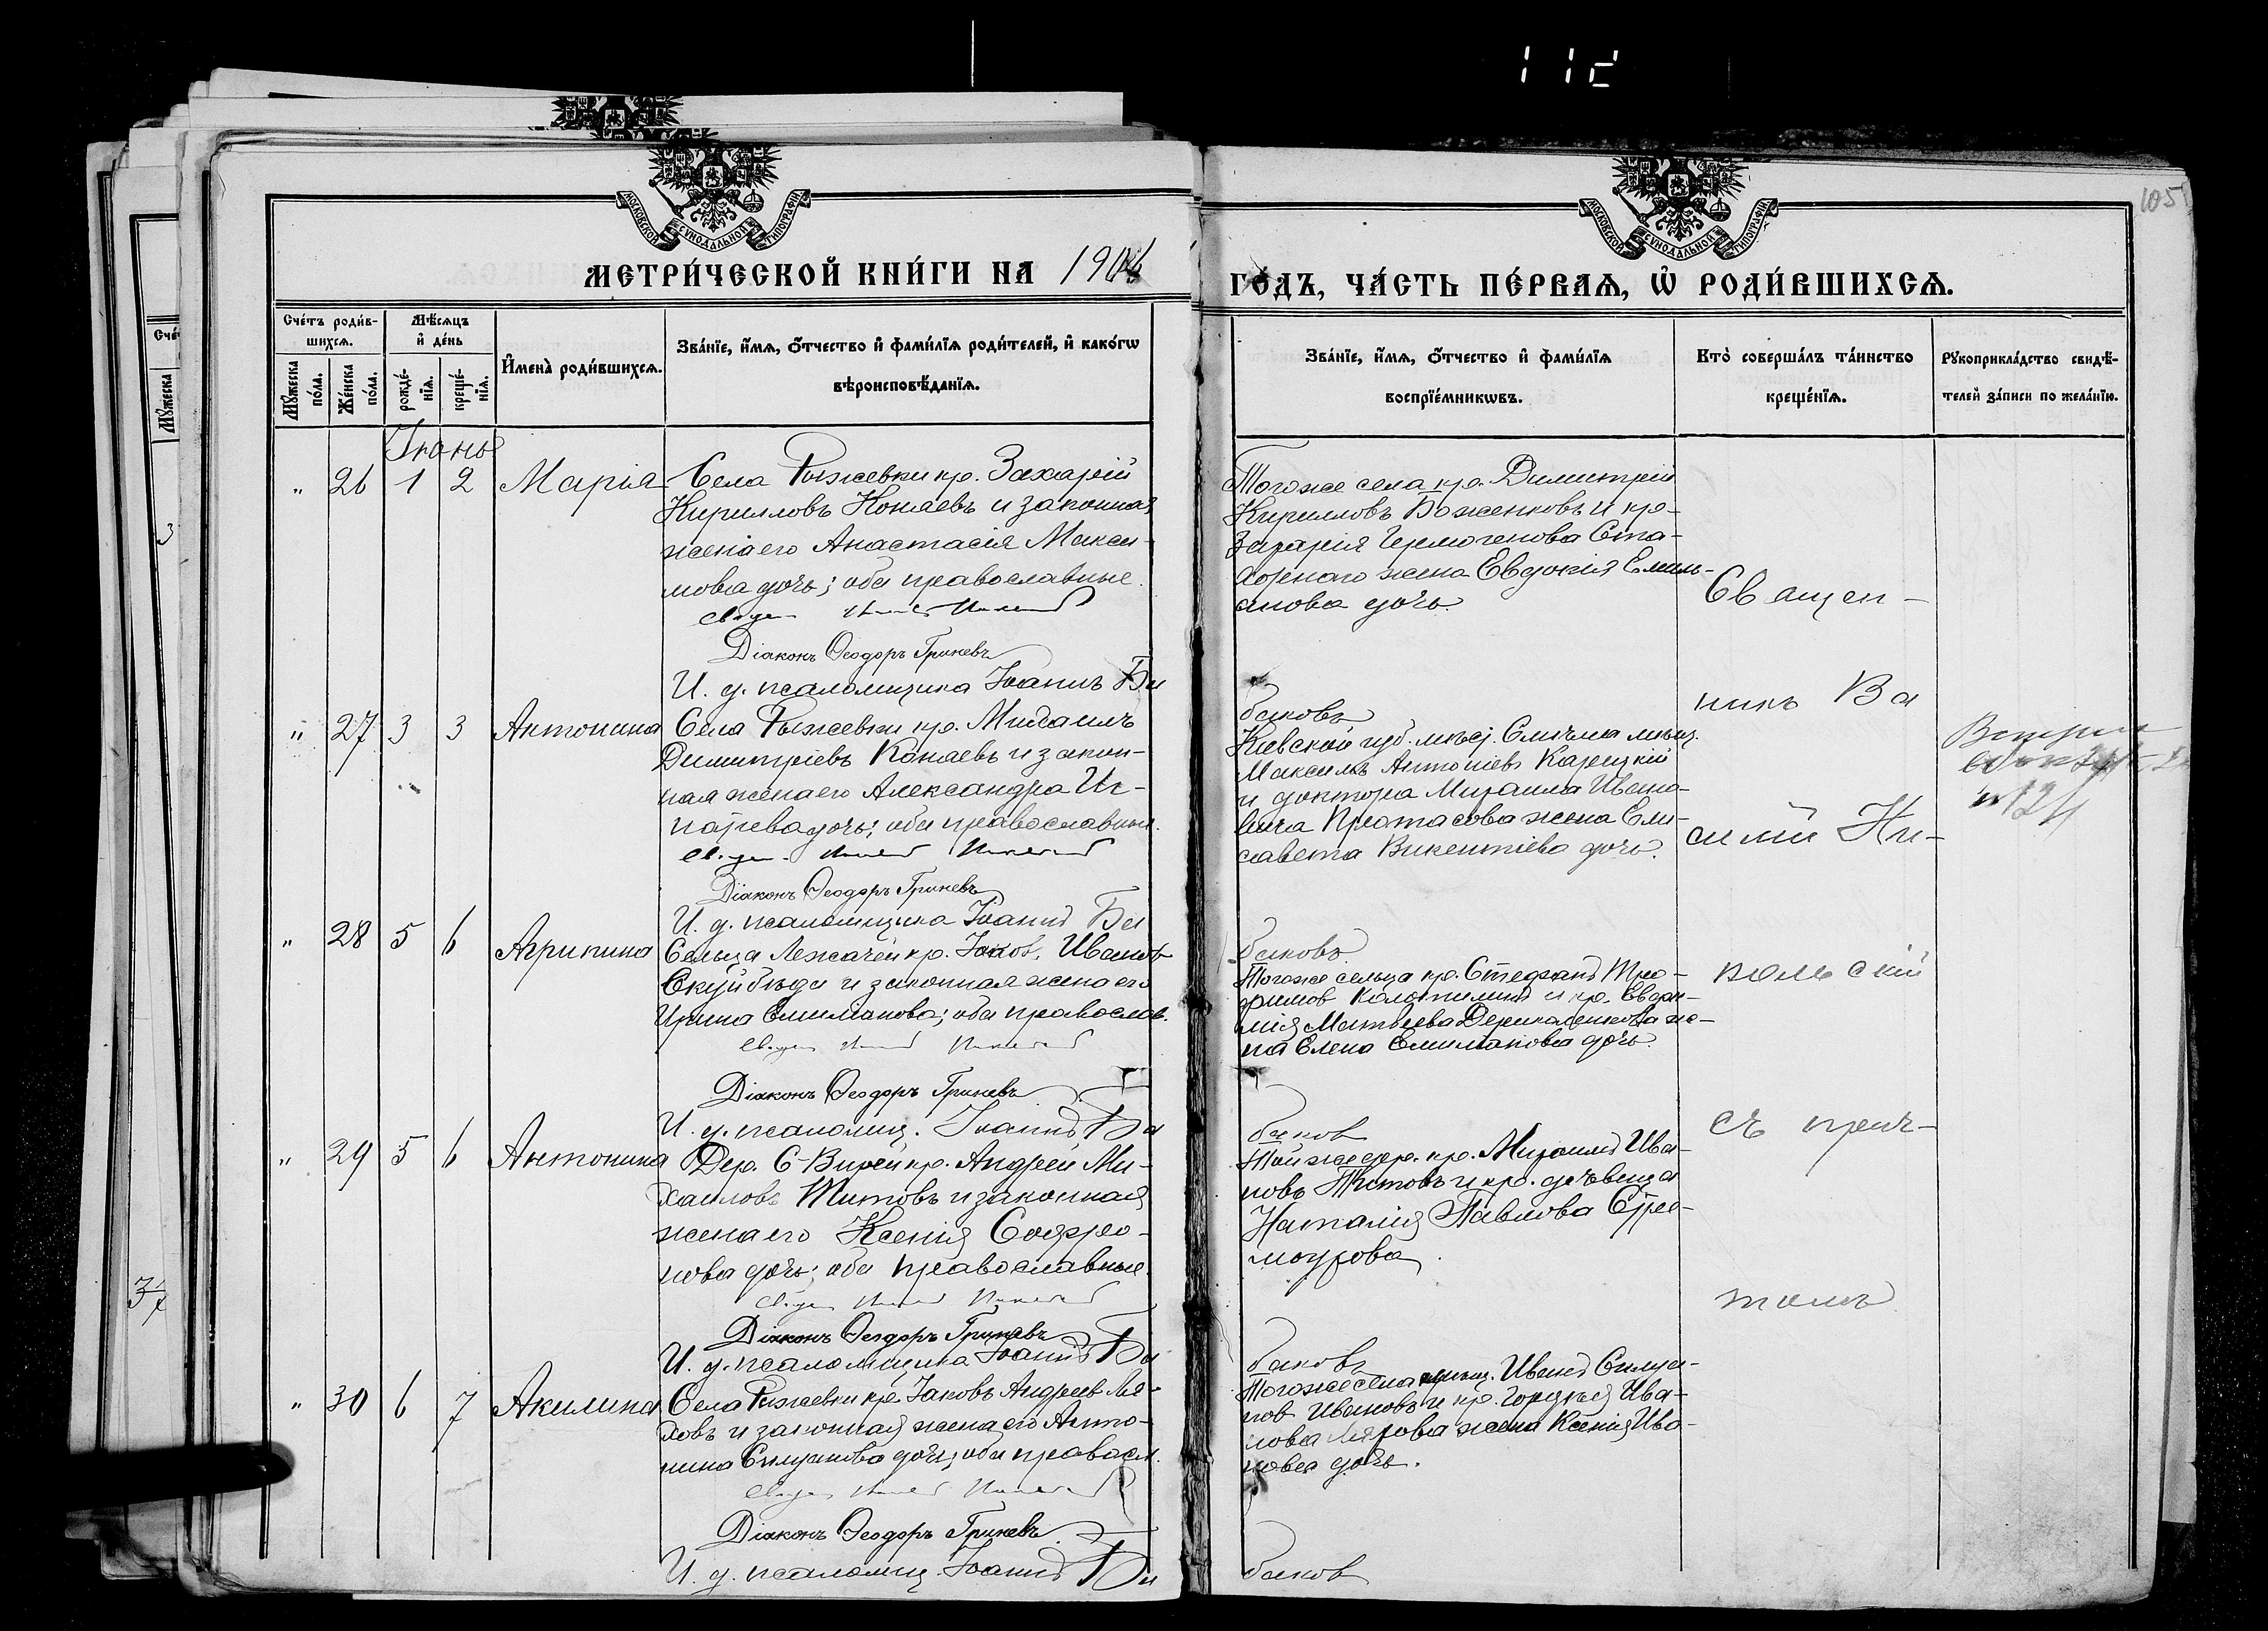 112
105
МОСКОВСКОЙ СѴНОДАЛЬНОЙ ТИПОГРАФІИ
МОСКОВСКОЙ СѴНОДАЛЬНОЙ ТИПОГРАФІИ
МЕТРИ́ЧЕСКОЙ КНИ́ГИ НА 190
ГО́ДЪ, ЧА́СТЬ ПЕ́РВАѦ, Ѡ҆ РОДИ́ВШИХСѦ.
Сче́тъ роди́в-
шихсѧ.
Мѣ́сѧцъ
и҆ де́нь
Мꙋ́жеска
по́ла.
Же́нска
по́ла.
рожде́-
нїѧ.
креще́-
нїѧ.
И҆мена̀ роди́вшихсѧ.
Зва́нїе, и҆́мѧ, ѻ҆́тчество и҆ фами́лїѧ роди́телей, и҆ како́гѡ
вѣроисповѣ́данїѧ.
Зва́нїе, и҆́мѧ, ѻ҆́тчество и҆ фами́лїѧ
воспрїе́мникѡвъ.
Кто̀ соверша́лъ та́инство
креще́нїѧ.
Рꙋкоприкла́дство свидѣ́-
телей за́писи по жела́нїю.
Іюнь
" 26 1 2 Марія Села Рыжевки кр. Захарій
Кирилловъ Конаевъ и законная
жена его Анастасія Макси-
мова дочь; оба православные.
Діаконъ Ѳеодоръ Гриневъ
И. д. псаломщика Іоаннъ Би
Тогоже села кр. Димитрій
Кирилловъ Боженковъ и кр.
Захарія Гермогенова Ста-
жена Евдокія Емель-
анова дочь.
баковъ
Священ-
никъ Ва
силій Ни-
кольскій
съ прич-
томъ
" 27 3 3 Антонина Села Рыжевки кр. Михаилъ
Димитріевъ Конаевъ и закон-
ная жена его Александра Иг-
натьева дочь; оба православные.
Діаконъ Ѳеодоръ Гриневъ
И. д. псаломщика Іоаннъ Би
Кіевской губ. мѣст. Смѣла мѣщ.
Максимъ Антоніевъ Карецкій
и доктора Михаила Ивано-
вича Протасова жена Ели-
савета Викентіева дочь.
баковъ
" 28 5 6 Агрипина Сельца Лежачей кр. Іаковъ Ивановъ
Скуйбѣда и законная жена его
Ирина Емилианова; оба правосла.
Діаконъ Ѳеодоръ Гриневъ
И. д. псаломщ. Іоаннъ Би
Тогоже сельца кр. Стефанъ Тро-
фимовъ и кр. Евфи-
мія Матвѣева же-
на Елена Емилианова дочь.
баковъ
" 29 5 6 Антонина Дер. С-Вирей кр. Андрей Ми-
хаиловъ Титовъ и законная
жена его Ксенія Софро-
нова дочь; оба православные.
Діаконъ Ѳеодоръ Гриневъ
И. д. псаломщика Іоаннъ Би
Той же дер. кр. Михаилъ Ива-
новъ Титовъ и кр. дѣвица
Наталія Павлова
баковъ
" 30 6 7 Акилина Села Рыжевки кр. Іаковъ Андреев Ля-
ховъ и законная жена его Анто-
нина Силуанова дочь; оба правосл.
Діаконъ Ѳеодоръ Гриневъ
И. д. псаломщ. Іоаннъ Би
Тогоже села Иванъ Силуа-
нов Ивановъ и кр.
Ляхова жена Ксенія Ива-
нова дочь.
баков